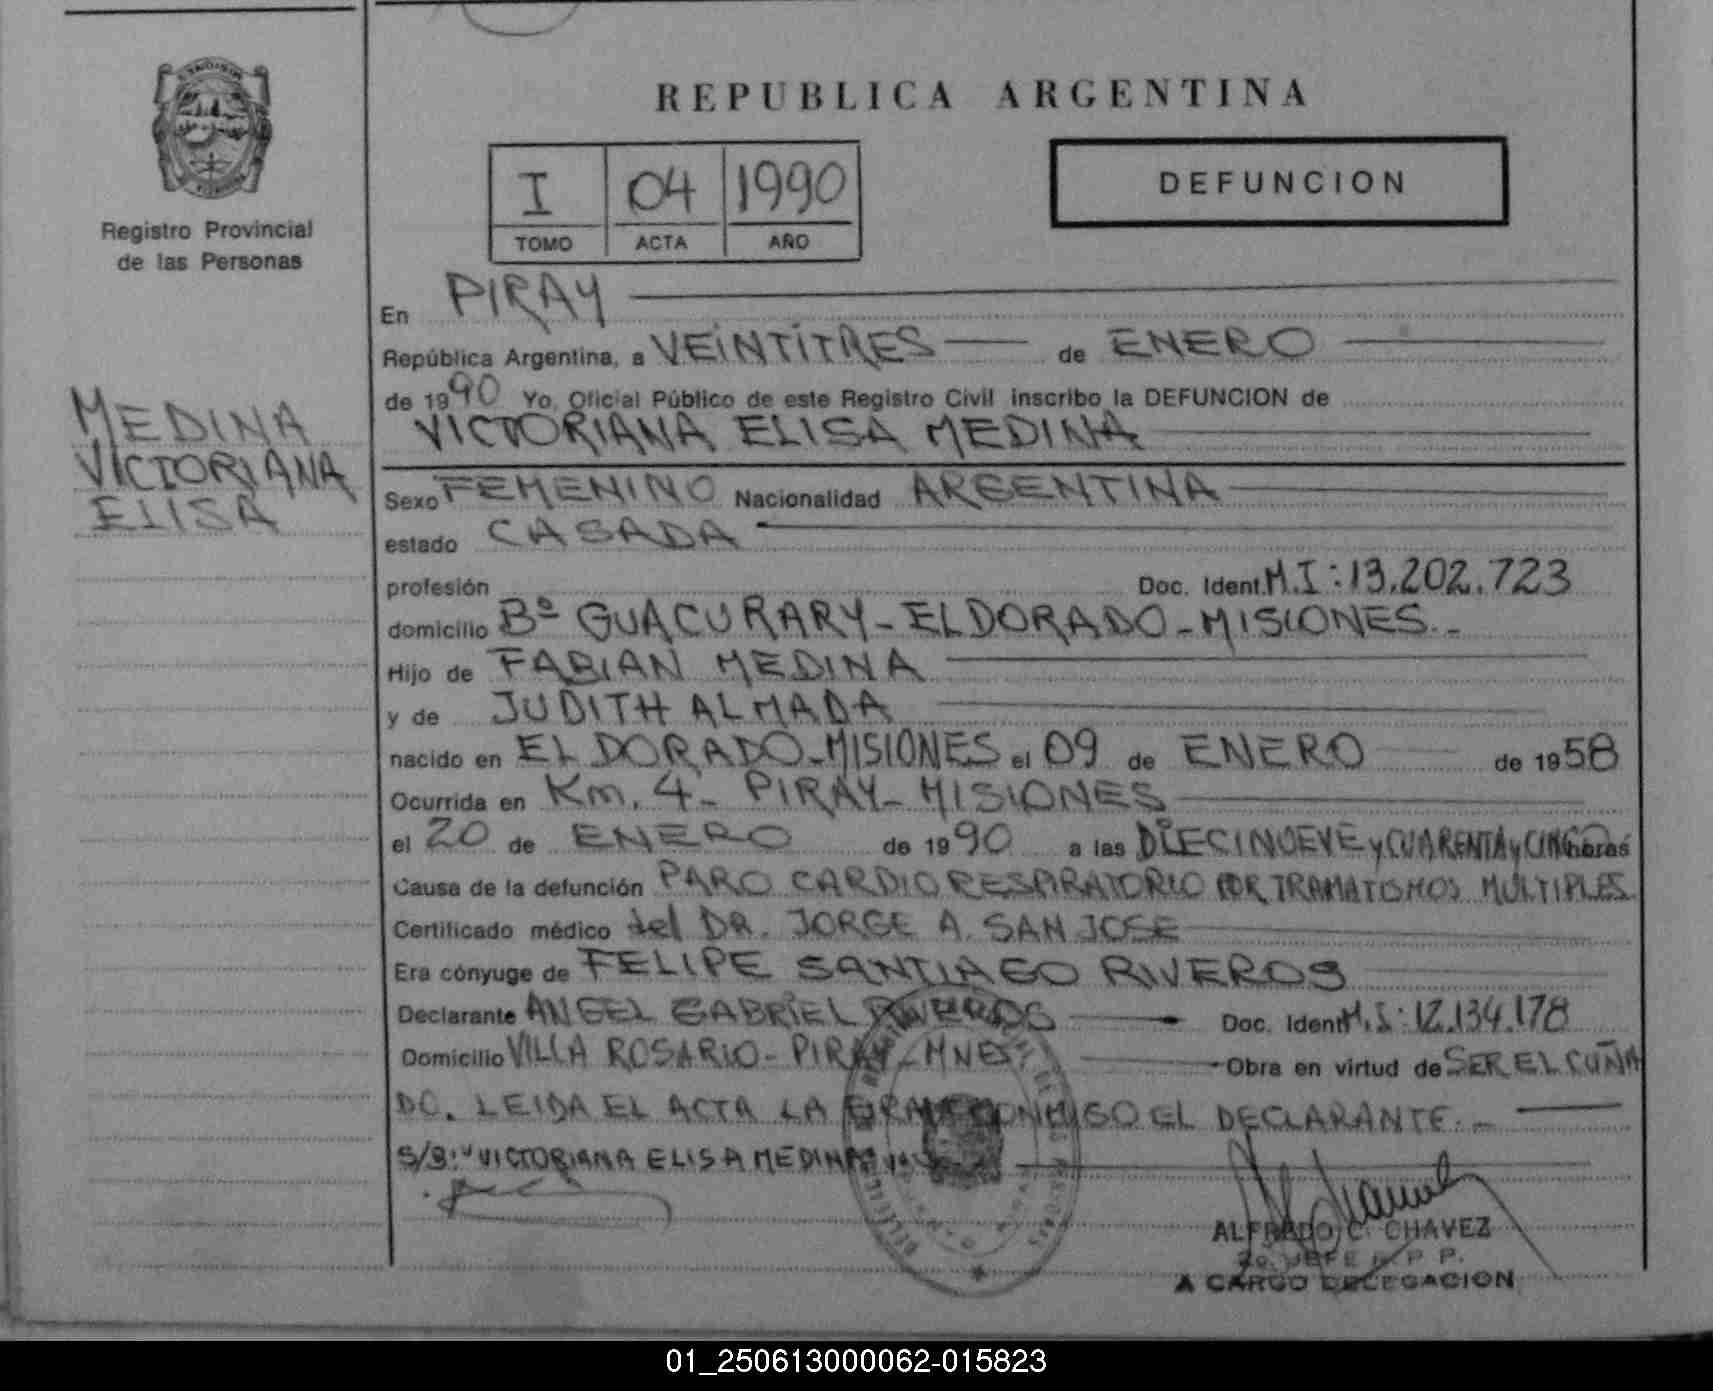 REPUBLICA ARGENTINA
I 04 1990
TOMO ACTA AÑO
DEFUNCION
Registro Provincial
de las Personas
MEDINA
VICTORIANA
ELISA
En PIRAY
República Argentina, a VEINTITRES de ENERO
de 1990 Yo, Oficial Público de este Registro Civil inscribo la DEFUNCION de
VICTORIANA ELISA MEDINA
Sexo FEMENINO Nacionalidad ARGENTINA
estado CASADA
profesión Doc. Ident. M.I: 13.202.723
domicilio Bº GUACURARY - ELDORADO - MISIONES.-
Hijo de FABIAN MEDINA
y de JUDITH ALMADA
nacido en ELDORADO - MISIONES el 09 de ENERO de 1958
Ocurrida en Km. 4 - PIRAY - MISIONES
el 20 de ENERO de 1990 a las DIECINUEVE y CUARENTA y CINCO horas
Causa de la defunción PARO CARDIORESPIRATORIO POR TRAMATISMOS MULTIPLES
Certificado médico del DR. JORGE A. SAN JOSE
Era cónyuge de FELIPE SANTIAGO RIVEROS
Declarante ANGEL GABRIEL RIVEROS Doc. Ident M.I: 12.134.178
Domicilio VILLA ROSARIO - PIRAY - MNES. Obra en virtud de SER EL CUÑA
DO. LEIDA EL ACTA LA FIRMA CONMIGO EL DECLARANTE.-
S/B: "VICTORIANA ELISA MEDINA"
ALFREDO C. CHAVEZ
2o. JEFE R. P. P.
A CARGO DELEGACION
01_250613000062-015823